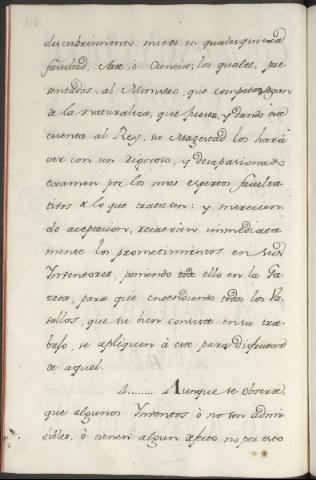 descubrimiento nuebo en qualesquiera
facultad, Arte, ò Ciencia; los quales, pre-
sentados, al Ministro, que competa, segun
de la naturaleza, que fuesen, y dando este
cuenta al Rey, su Magestad los hará
ver con un rigoroso, y desapasionado
examen por los mas expertos faculta-
tivos de lo que tratasen: y merecien
do aceptacion, recaeran inmediata
mente los prometimientos en sus
Inventores, poniendo todo ello en la Ga-
zeta, para que entendiendo todos los Va-
sallos, que su bien consiste en su tra-
bajo, se apliquen à este para disfrutar
de aquel.
4........ Aunque se observe,
que algunos Inventos ò no son admi-
sibles, ò tienen algun defecto, no por esto